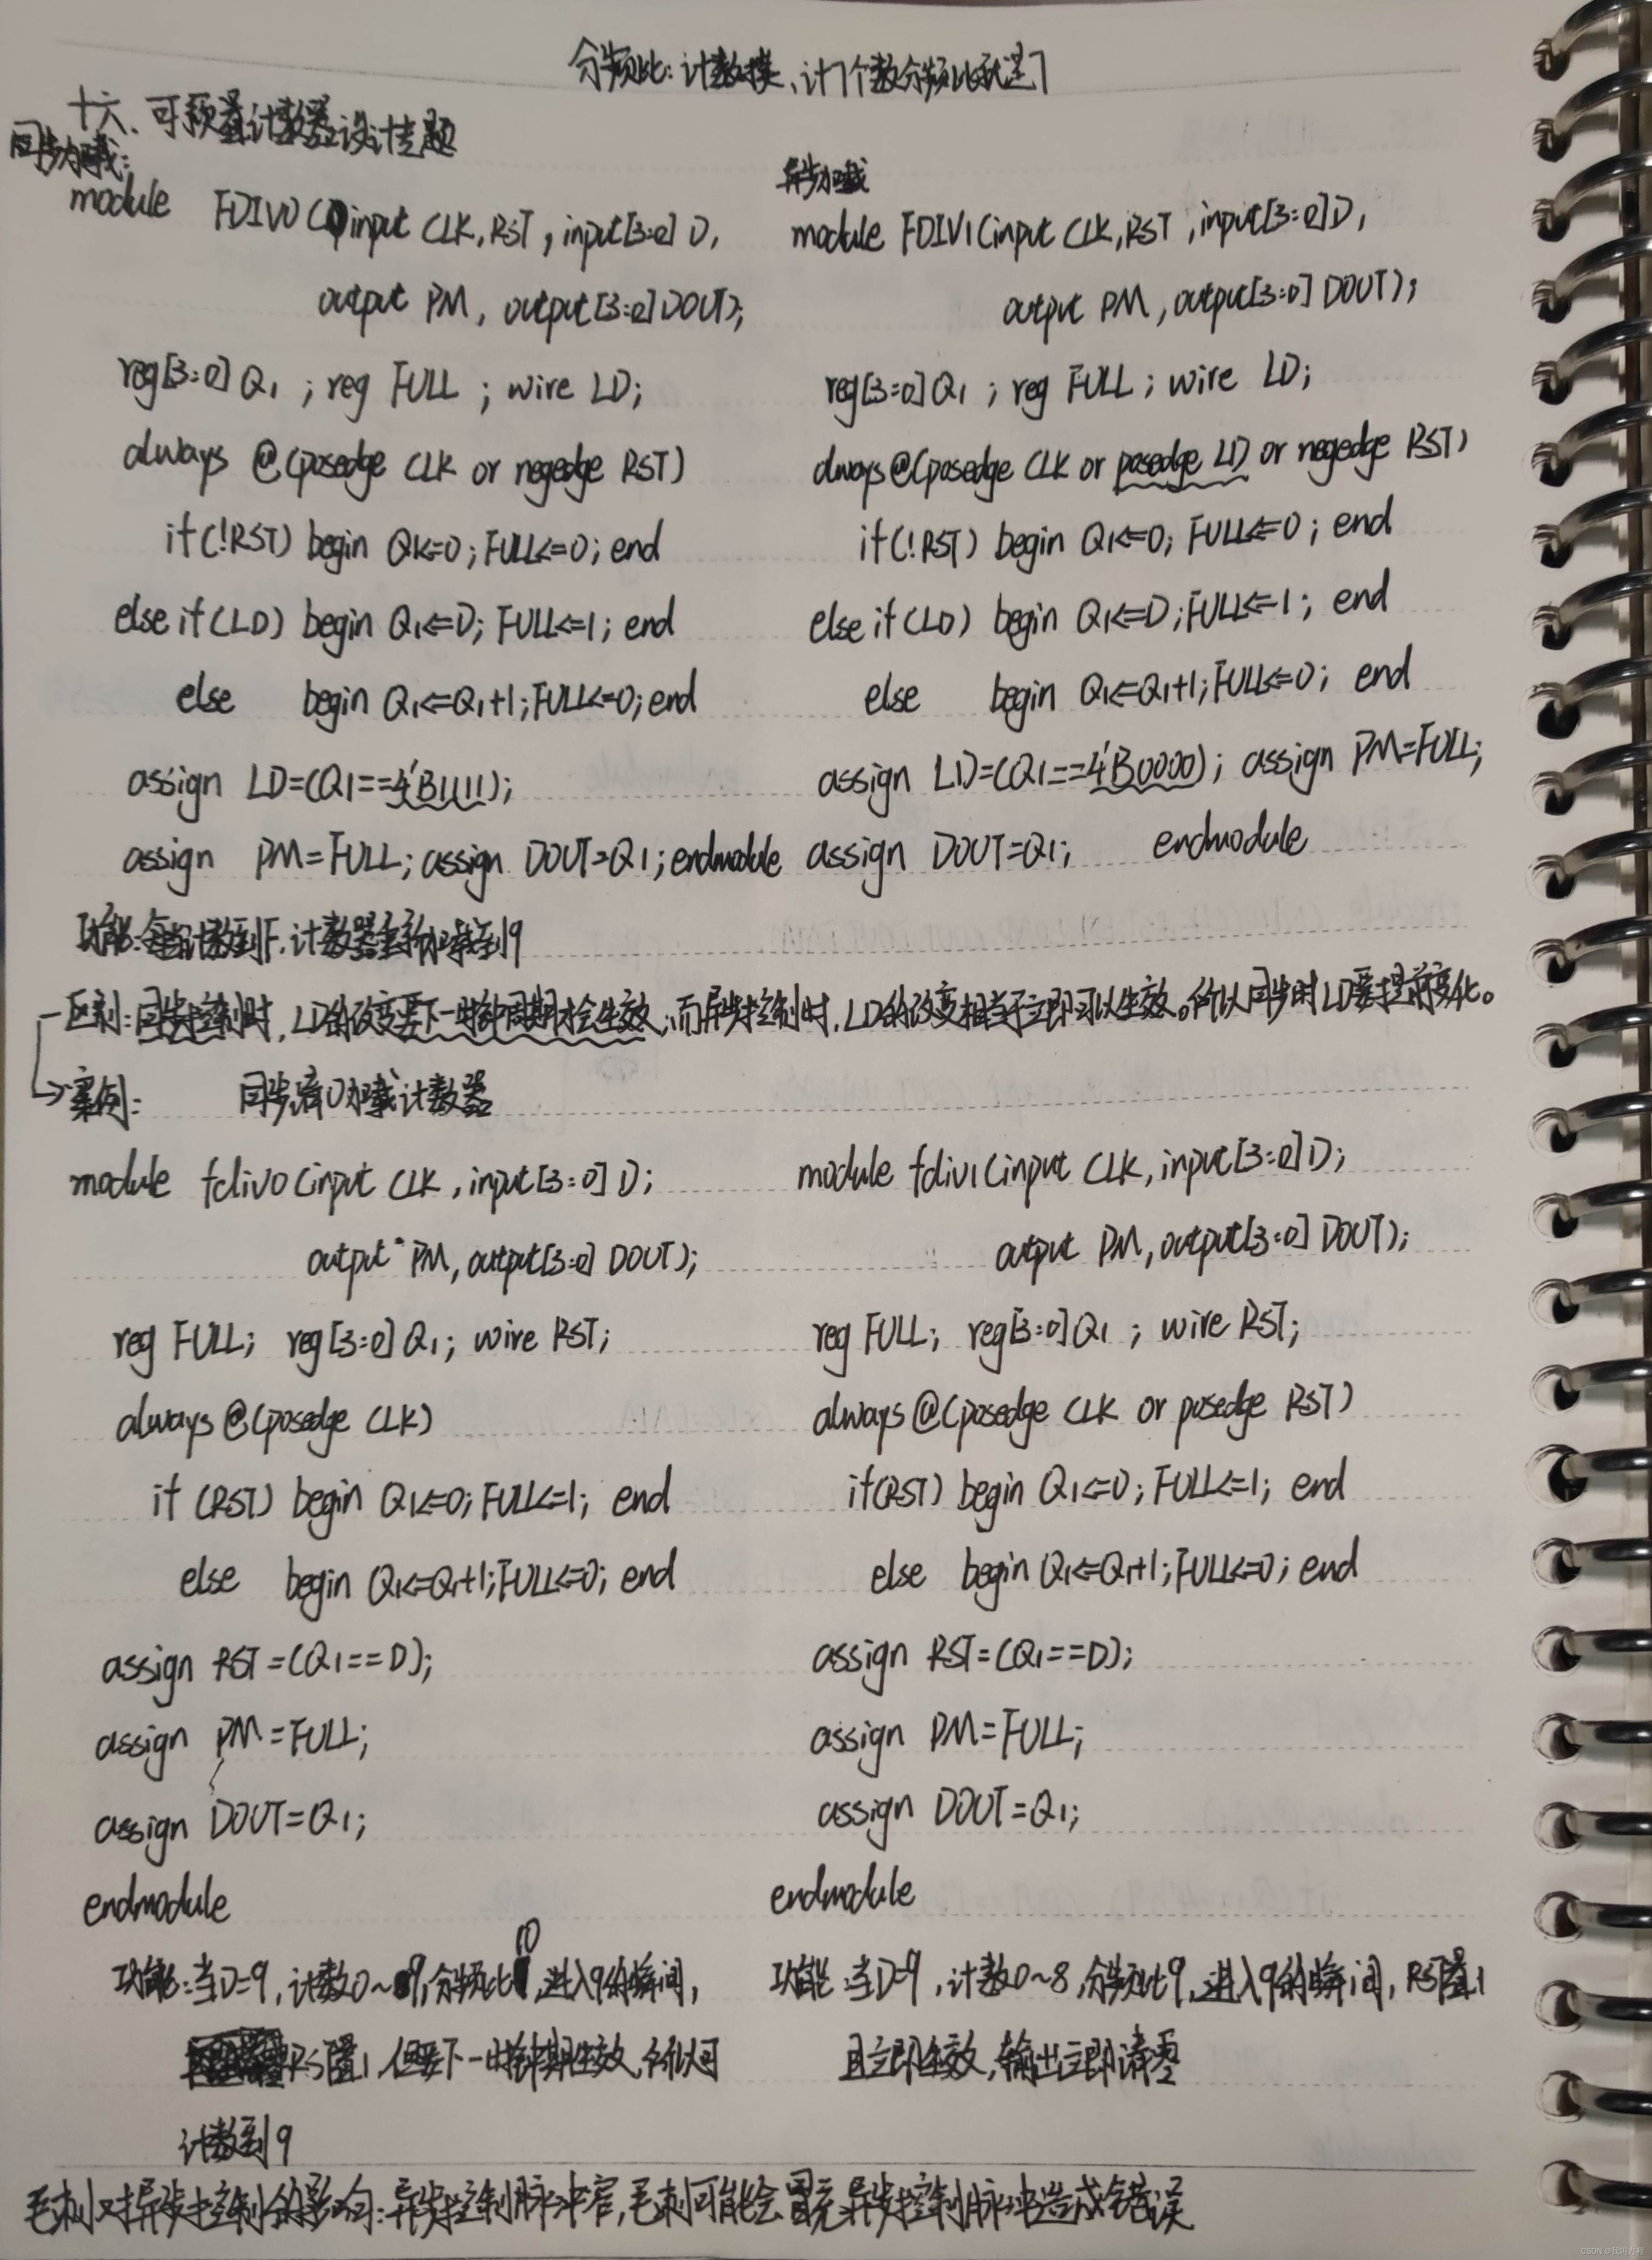 分频比:计数模、计个数分频比就是
十六、可预置计数器设计专题
同步加载:
module FDIV0(input CLK,RST,input[3:0] D,
output PM, output[3:0]DOUT);
reg[3:0]Q1 ; reg FULL ; wire LD;
always @(posedge CLK or negedge RST)
if(!RST) begin Q1<=0;FULL<=0; end
else if(LD) begin Q1<=D; FULL<=1; end
else begin Q1<=Q1+1;FULL<=0;end
assign LD=(Q1==4'B1111);
assign PM=FULL;assign DOUT=Q1;endmodule
异步加载
module FDIV1(input CLK,RST,input[3:0]D,
output PM,output[3:0]DOUT);
reg[3:0]Q1 ; reg FULL ; wire LD;
always@(posedge CLK or posedge LD or negedge RST)
if(!RST) begin Q1<=0; FULL<=0 ; end
else if(LD) begin Q1<=D;FULL<=1; end
else begin Q1<=Q1+1;FULL<=0; end
assign LD=(Q1==4'B0000); assign PM=FULL;
assign DOUT=Q1; endmodule
功能:每当计数到F,计数器重新加载到9
区别:同步控制时,LD的改变要下一时钟周期才会生效,而异步控制时,LD的改变相当于立即可以生效。所以同步时LD要提前变化。
案例: 同步清0加载计数器
module fdiv0(input CLK,input[3:0] D;
output PM,output[3:0] DOUT);
reg FULL; reg[3:0]Q1; wire RST;
always@(posedge CLK)
if (RST) begin Q1<=0;FULL<=1; end
else begin Q1<=Q1+1;FULL<=0; end
assign RST=(Q1==D);
assign PM=FULL;
assign DOUT=Q1;
endmodule
功能:当D=9,计数0~9,分频比10,进入9的瞬间,
RST置1,但要下一时钟周期生效,所以可
计数到9
module fdiv1(input CLK,input[3:0]D;
output PM,output[3:0] DOUT);
reg FULL; reg[3:0]Q1 ; wire RST;
always@(posedge CLK or posedge RST)
if(RST) begin Q1<=0; FULL<=1; end
else begin Q1<=Q1+1;FULL<=0; end
assign RST=(Q1==D);
assign PM=FULL;
assign DOUT=Q1;
endmodule
功能:当D=9,计数0~8,分频比9,进入9的瞬间,RST置1
且立即生效,输出立即清零
毛刺对异步控制的影响:异步控制脉冲窄,毛刺可能会冒充异步控制脉冲造成错误